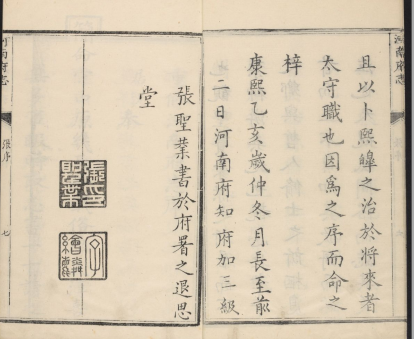 且以卜熙皥之治於將來者
太守職也因爲之序而命之
梓
康熙乙亥歲仲冬月長至前
二日河南府知府加三級
張聖業書於府署之退思
堂
河南府志
張序
七